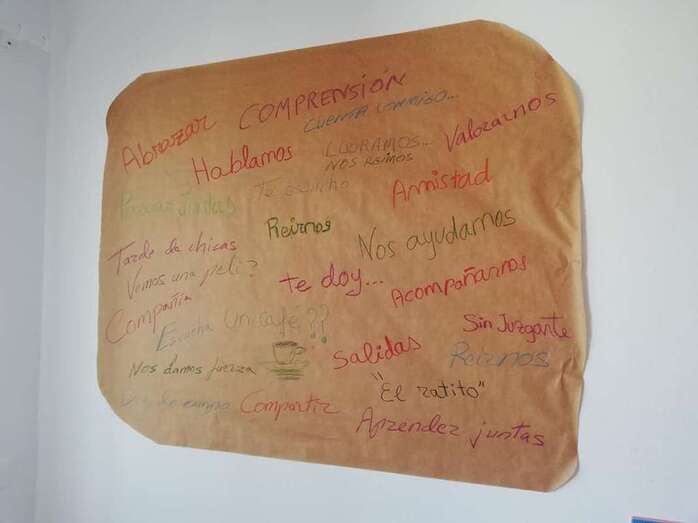 COMPRENSIÓN
CUENTA CONMIGO...
Abrazar
Valorarnos
Hablamos
LLORAMOS...
NOS REIMOS
Te escucho
Amistad
Juntas
Reirnos
Nos ayudamos
Tarde de chicas
Vemos una peli?
te doy...
Acompañarnos
Compañía
Escucha
Un café??
Sin Juzgarte
Salidas
Reirnos
Nos damos fuerza
"El ratito"
Compartir
Aprender juntas